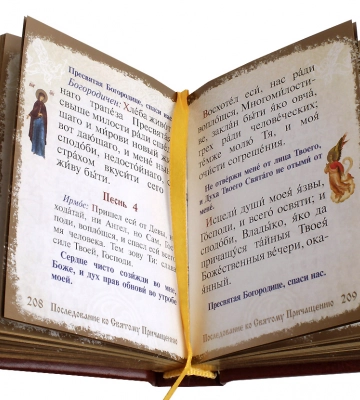 Пресвятая Богородице, спаси нас.
Богородичен: Хлѣ́ба живо́т-
наго трапе́за Пресвята́я,
свы́ше ми́лости ра́ди сше́д-
шаго и ми́рови но́вый жи-
во́т даю́щаго: и мене́ ны́не
сподо́би, недосто́йнаго, со
стра́хом вкуси́ти сего́, и
жи́ву бы́ти.
Песнь 4
Ирмо́с: Прише́л еси́ от Де́вы, не
хода́тай, ни А́нгел, но Сам, Го́с-
поди, вопло́щся, и спасл еси́ всего́
мя челове́ка. Тем зову́ Ти: сла́ва
си́ле Твое́й, Го́споди.
Сердце чисто созижди во мне,
Боже, и дух прав обнови во утробе
моей.
208 Последование ко Святому Причащению
Восхоте́л еси́, нас ра́ди
вопло́щся, Многоми́лости-
ве, закла́н бы́ти я́ко овча́,
грех ра́ди челове́ческих:
те́мже молю́ Тя, и моя́
очи́сти согреше́ния.
Не отвержи мене от лица Твоего,
и Духа Твоего Святаго не отыми от
мене.
Исцели́ души́ моея́ я́звы,
Го́споди, и всего́ освяти́: и
сподо́би, Влады́ко, я́ко да
причащу́ся та́йныя Твоея́
Боже́ственныя ве́чери, ока-
я́нный.
Пресвятая Богородице, спаси нас.
Последование ко Святому Причащению 209